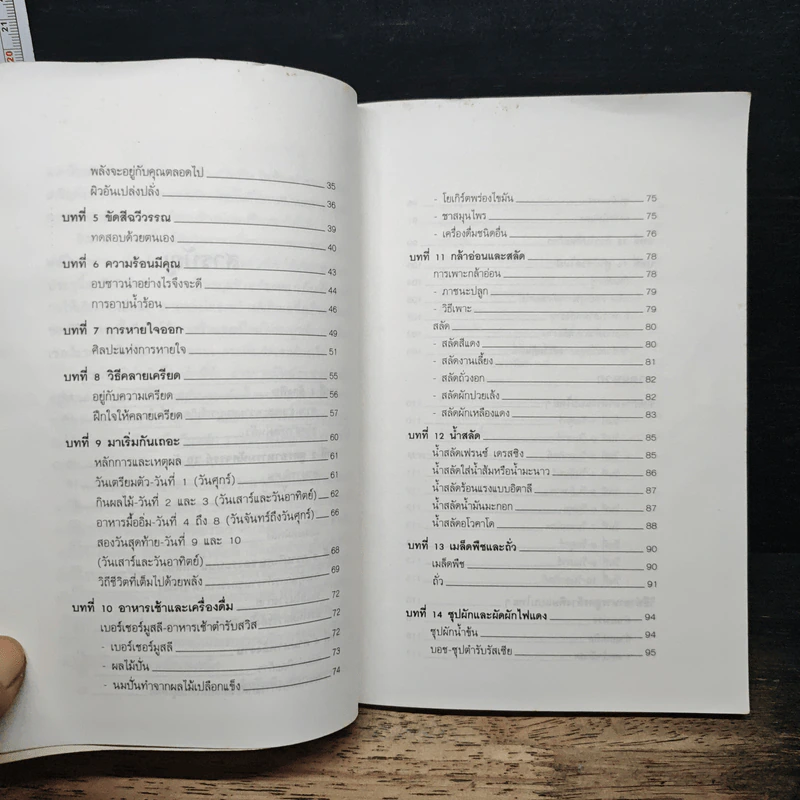 พลังจะอยู่กับคุณตลอดไป 35
ผิวอันเปล่งปลั่ง 36
บทที่ 5 ขัดสีฉวีวรรณ 39
ทดสอบด้วยตนเอง 40
บทที่ 6 ความร้อนมีคุณ 43
อบซาวน่าอย่างไรจึงจะดี 44
การอาบน้ำร้อน 46
บทที่ 7 การหายใจออก 49
ศิลปะแห่งการหายใจ 51
บทที่ 8 วิธีคลายเครียด 55
อยู่กับความเครียด 56
ฝึกใจให้คลายเครียด 57
บทที่ 9 มาเริ่มกันเถอะ 60
หลักการและเหตุผล 61
วันเตรียมตัว-วันที่ 1 (วันศุกร์) 61
กินผลไม้-วันที่ 2 และ 3 (วันเสาร์และวันอาทิตย์) 62
อาหารมื้ออิ่ม-วันที่ 4 ถึง 8 (วันจันทร์ถึงวันศุกร์) 66
สองวันสุดท้าย-วันที่ 9 และ 10
(วันเสาร์และวันอาทิตย์) 68
วิถีชีวิตที่เต็มไปด้วยพลัง 69
บทที่ 10 อาหารเช้าและเครื่องดื่ม 72
เบอร์เชอร์มูสลี-อาหารเช้าตำรับสวิส 72
- เบอร์เชอร์มูสลี 73
- ผลไม้ปั่น 74
- นมปั่นทำจากผลไม้เปลือกแข็ง
- โยเกิร์ตพร่องไขมัน 75
- ชาสมุนไพร 75
- เครื่องดื่มชนิดอื่น 76
บทที่ 11 กล้าอ่อนและสลัด 78
การเพาะกล้าอ่อน 78
- ภาชนะปลูก 79
- วิธีเพาะ 79
สลัด 80
- สลัดสีแดง 80
- สลัดงานเลี้ยง 81
- สลัดถั่วงอก 82
- สลัดผักปวยเล้ง 82
- สลัดผักเหลืองแดง 83
บทที่ 12 น้ำสลัด 85
น้ำสลัดเฟรนช์ เดรสซิง 85
น้ำสลัดใส่น้ำส้มหรือน้ำมะนาว 86
น้ำสลัดร้อนแรงแบบอิตาลี 87
น้ำสลัดน้ำมันมะกอก 87
น้ำสลัดอโวคาโด 88
บทที่ 13 เมล็ดพืชและถั่ว 90
เมล็ดพืช 90
ถั่ว 91
บทที่ 14 ซุปผักและผัดผักไฟแดง 94
ซุปผักน้ำข้น 94
บอช-ซุปตำรับรัสเซีย 95
20
21